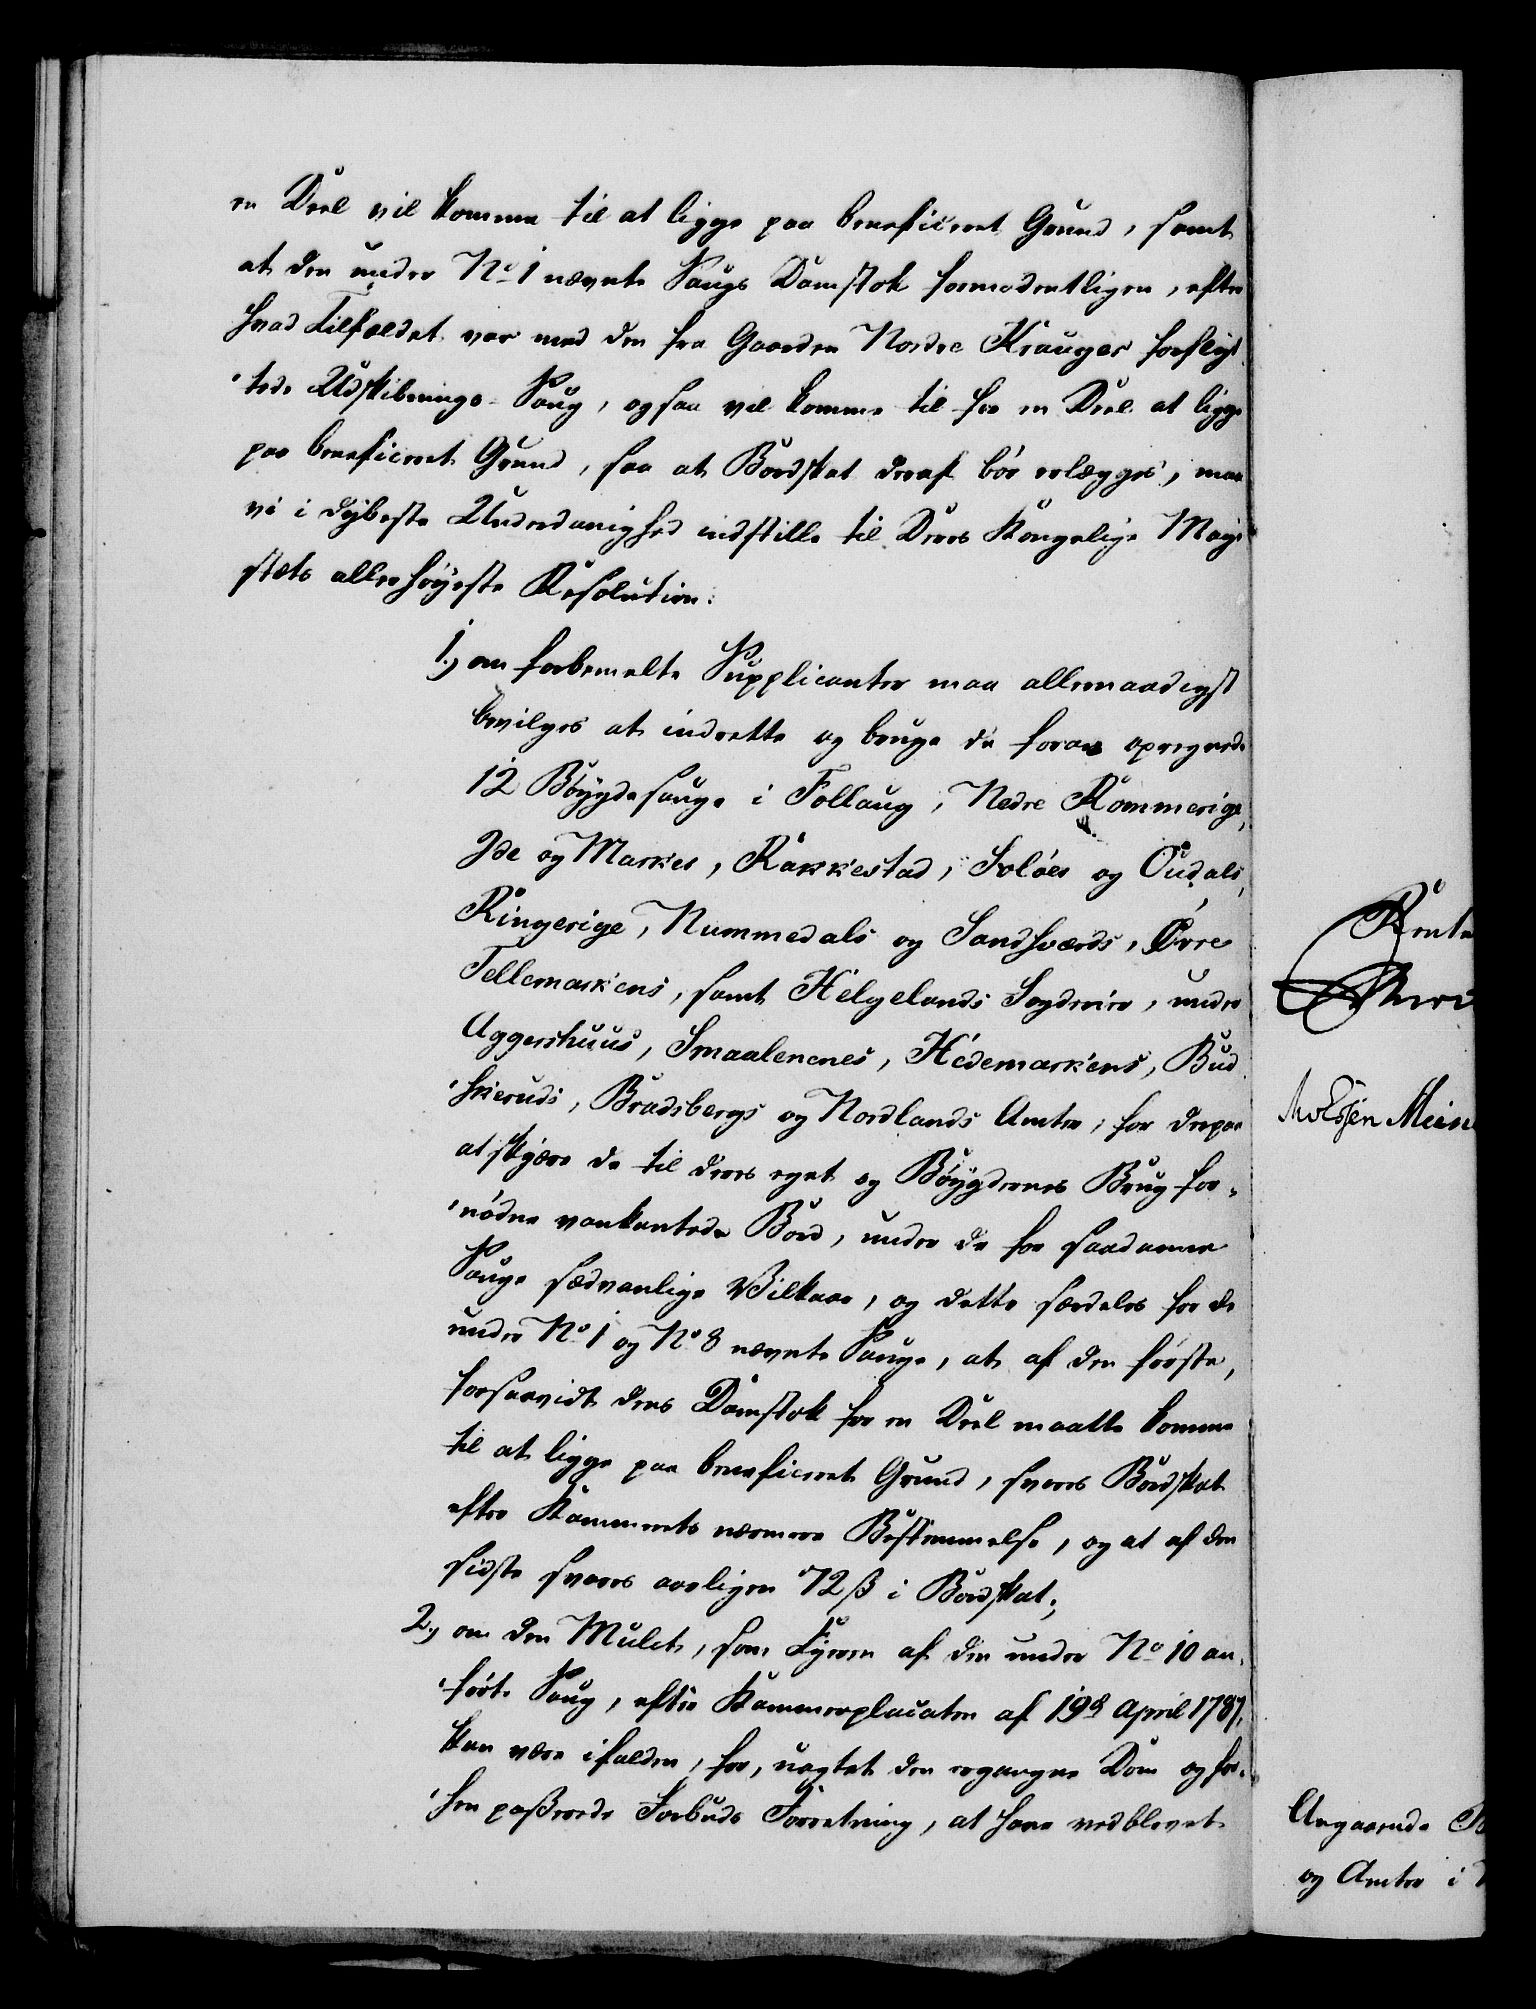 en Deel vil komme til at ligge paa beneficeret Grund, samt
at den under No 1 nævnte Saugs Damstok formodentligen, efter
hvad Tilfældet var med den fra Gaarden Nordre Krauger forflyt-
tede Udskibnings-Saug, ogsaa vil komme til for en Deel at ligge
paa beneficeret Grund, saa at Bordskat deraf bör erlægges, maa
vi i dybeste Underdanighed indstille til Deres Kongelige Maje-
stæts allerhöyeste Resolution:
1.) om forbemelte Supplicanter maa allernaadigst
bevilges at indrette og bruge de foran opregnede
12 Böygdesauge i Follaug, Nedre Rommerige,
Ide og Markes, Rakkestad, Soløes og Oudals,
Ringerige, Nummedals og Sandsværds, Øvre
Tellemarkens, samt Helgelands Fogderier, under
Aggershuus, Smaalenenes, Hedemarkens, Bud-
skieruds, Bradsbergs og Nordlands Amter, for derpaa
at skjære de til deres eget og Böygdernes Brug for-
nödne vankantede Bord, under de for saadanne
Sauge sædvanlige Vilkaar, og dette særdeles for de
under No 1 og No 8 nævnte Sauge, at af den förste,
forsaavidt dens Damstok for en Deel maatte komme
til at ligge paa beneficeret Grund, svares Bordskat
efter Kammerets nærmere Bestemmelse, og at af den
sidste svares aarligen 72 ß i Bordskat;
2.) om den Mulct, som Eyeren af den under No 10 an-
förte Saug, efter Kammerplacaten af 19d April 1787,
kan være ifalden, for, uagtet den ergangne Dom og for-
hen passerede Forbuds Forretning, at have vedblevet
Rente
Molsen Mein
Angaaende
og Amter i